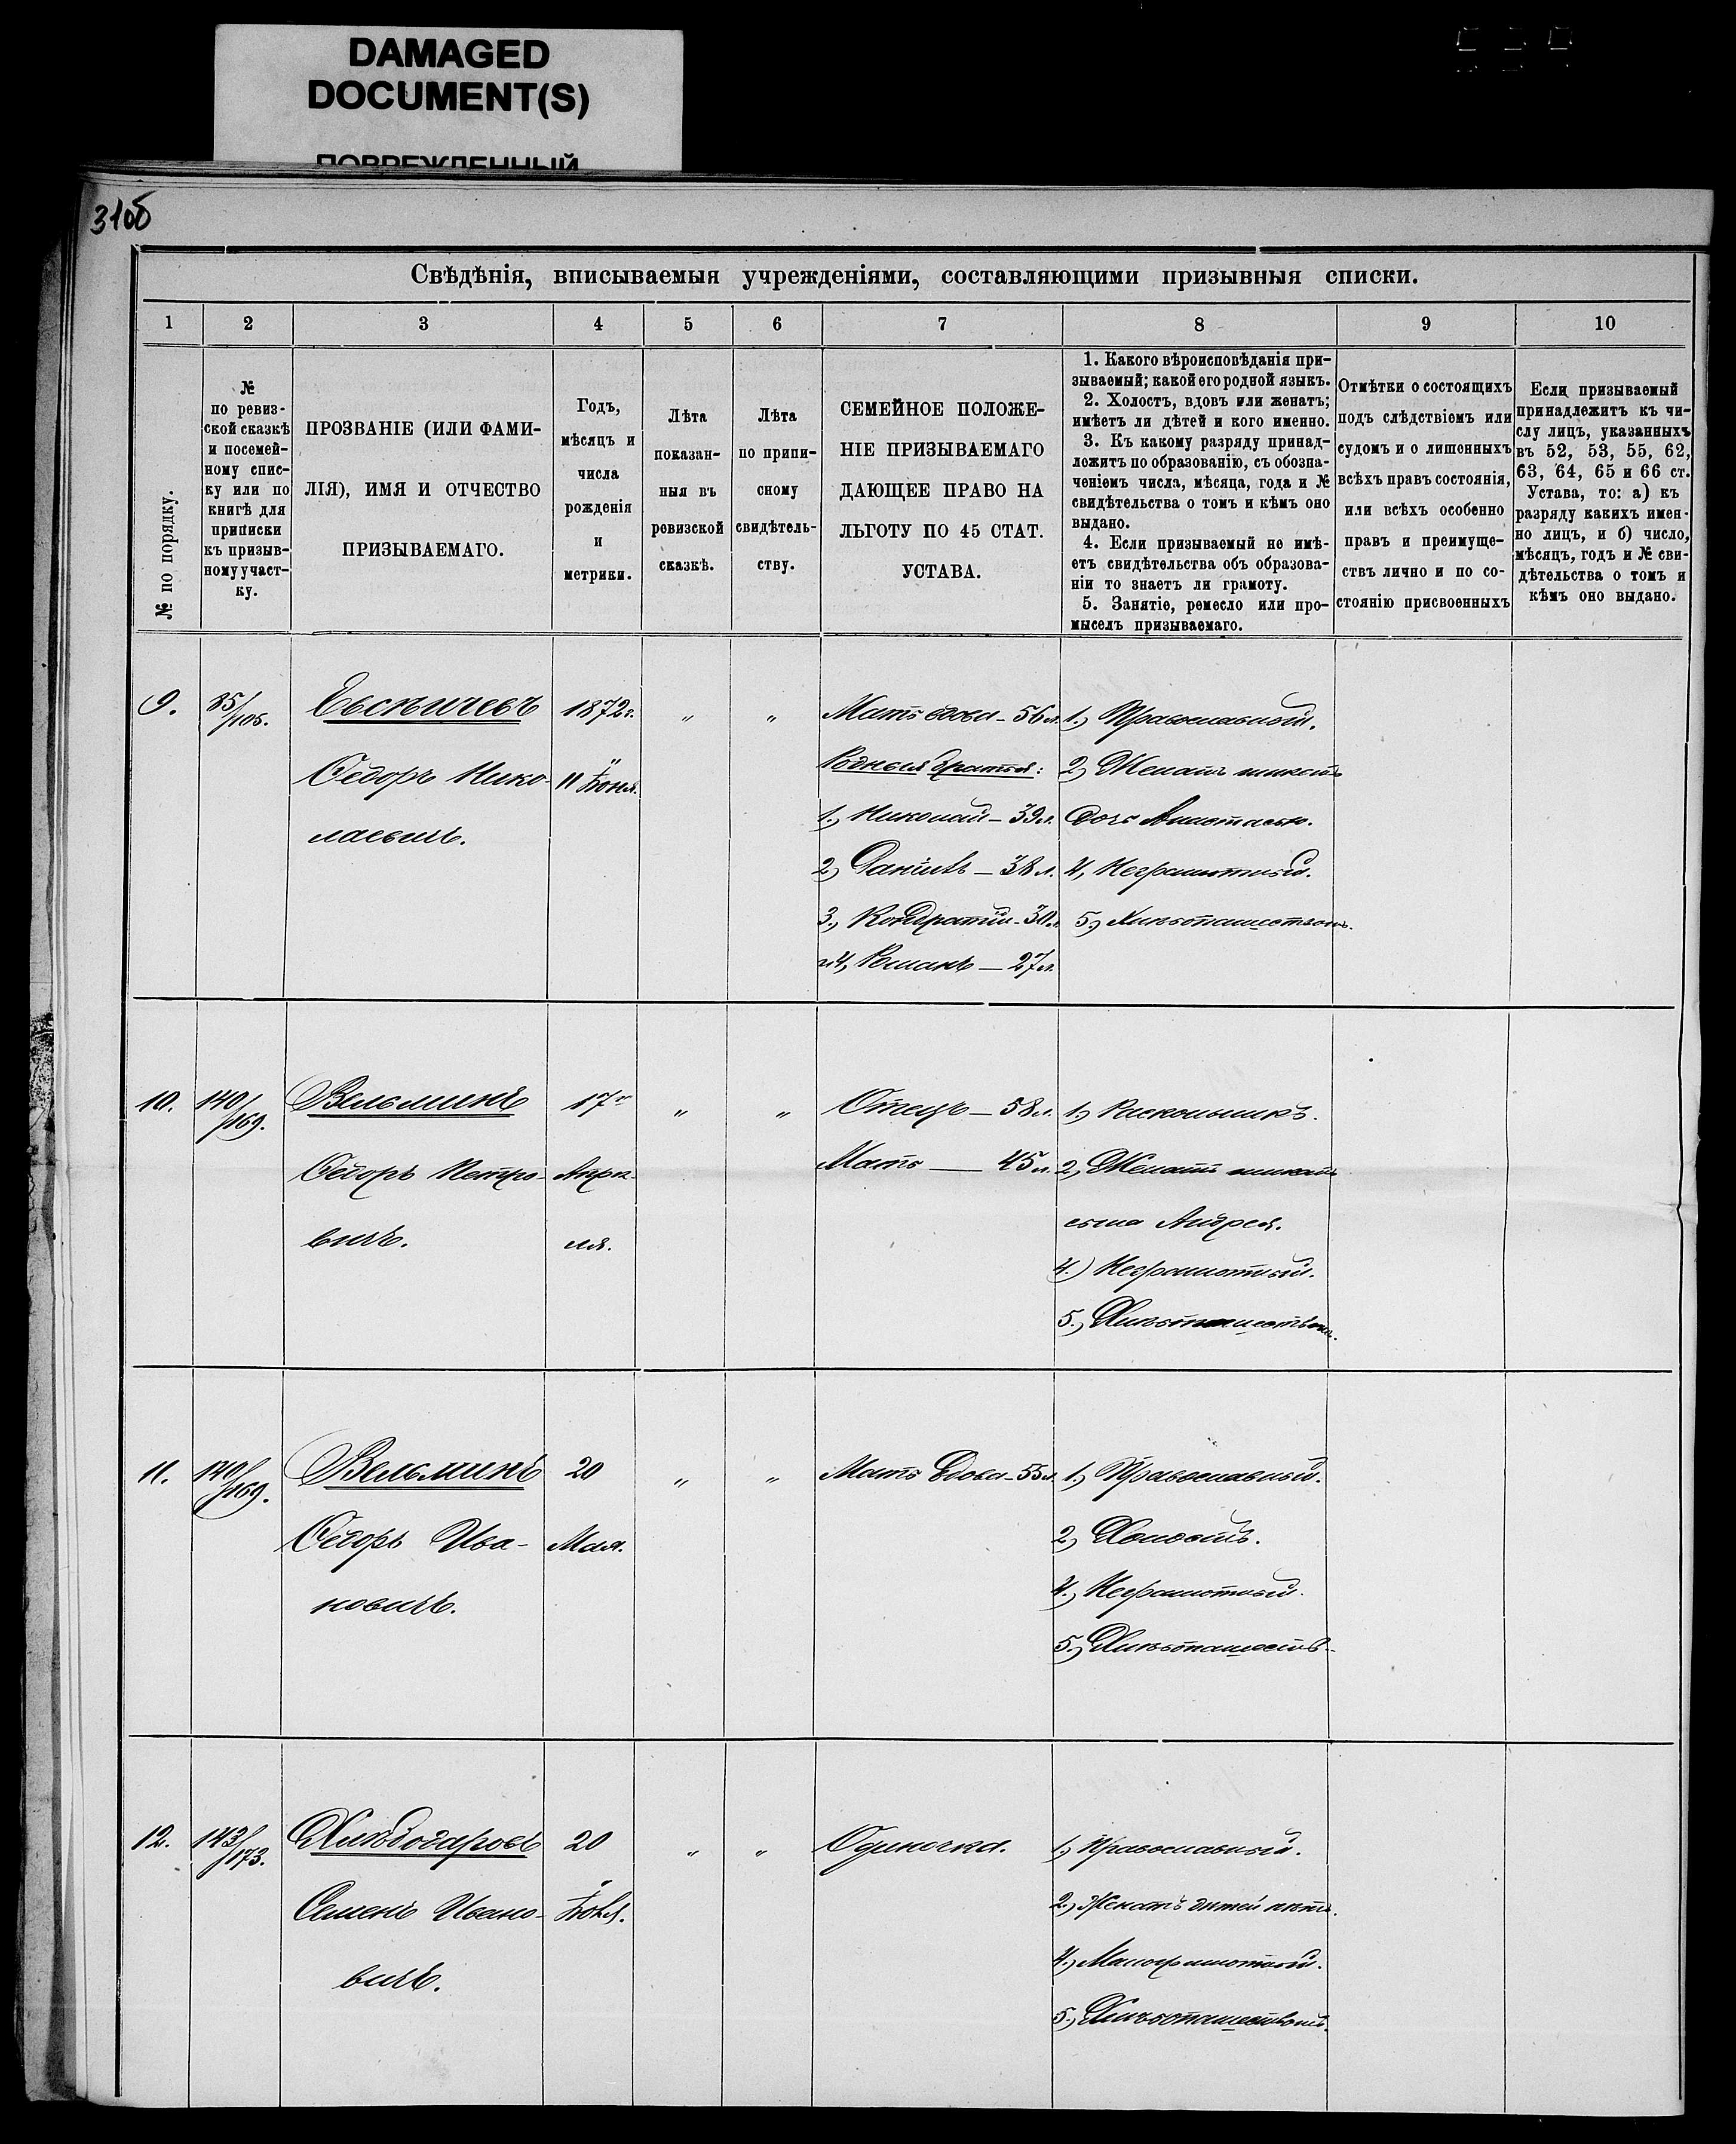 DAMAGED
DOCUMENT(S)
ПОВРЕЖДЕННЫЙ
31об
Свѣдѣнія, вписываемыя учрежденіями, составляющими призывныя списки.
1 2 3 4 5 6 7 8 9 10
№ по порядку.
№
по ревиз-
ской сказкѣ
и посемей-
ному спис-
ку или по
книгѣ для
приписки
къ призыв-
ному участ-
ку.
ПРОЗВАНІЕ (ИЛИ ФАМИ-
ЛІЯ), ИМЯ И ОТЧЕСТВО
ПРИЗЫВАЕМАГО.
Годъ,
мѣсяцъ и
числа
рожденія
и
метрики.
Лѣта
показан-
ныя въ
ревизской
сказкѣ.
Лѣта
по припи-
сному
свидѣтель-
ству.
СЕМЕЙНОЕ ПОЛОЖЕ-
НІЕ ПРИЗЫВАЕМАГО
ДАЮЩЕЕ ПРАВО НА
ЛЬГОТУ ПО 45 СТАТ.
УСТАВА.
1. Какого вѣроисповѣданія при-
зываемый; какой его родной языкъ.
2. Холостъ, вдовъ или женатъ;
имѣетъ ли дѣтей и кого именно.
3. Къ какому разряду принад-
лежитъ по образованію, съ обозна-
ченіемъ числа, мѣсяца, года и №
свидѣтельства о томъ и кѣмъ оно
выдано.
4. Если призываемый не имѣ-
етъ свидѣтельства объ образова-
ніи то знаетъ ли грамоту.
5. Занятіе, ремесло или про-
мыселъ призываемаго.
Отмѣтки о состоящихъ
подъ слѣдствіемъ или
судомъ и о лишенныхъ
всѣхъ правъ состоянія,
или всѣхъ особенно
правъ и преимуще-
ствъ лично и по со-
стоянію присвоенныхъ
Если призываемый
принадлежитъ къ чи-
слу лицъ, указанныхъ
въ 52, 53, 55, 62,
63, 64, 65 и 66 ст.
Устава, то: а) къ
разряду какихъ имен-
но лицъ, и б) число,
мѣсяцъ, годъ и № сви-
дѣтельства о томъ и
кѣмъ оно выдано.
9. 85/105.
Евсѣичевъ
Ѳедоръ Нико-
лаевичъ.
1872 г.
11 Іюня.
" "
Мать вдова - 56 л.
Родныя братья:
1., Николай - 39 л.
2, Даніилъ - 38 л.
3., Кондратій - 30 л.
и 4, Романъ - 27 л.
1., Православный.
2, Женатъ имѣетъ
дочь Анастасью.
4, Неграмотный.
5., Хлѣбопашествомъ.
10. 140/169.
Вельминъ
Ѳедоръ Петро-
вичъ.
17го
Апрѣ-
ля.
" "
Отецъ - 58 л.
Мать - 45 л.
1., Раскольникъ.
2, Женатъ имѣетъ
сына Андрея.
4.) Неграмотный.
5., Хлѣбопашествомъ.
11. 140/169.
Вельминъ
Ѳедоръ Ива-
новичъ.
20
Мая.
" "
Мать вдова - 55 л.
1., Православный.
2, Холостъ.
4., Неграмотный.
5., Хлѣбопашеств-
12. 143/173.
Хлѣбодаровъ
Семенъ Ивано-
вичъ.
20
Іюля.
" "
Одиночка.
1., Православный.
2., Женатъ дѣтей нѣтъ.
4., Малограмотный.
5., Хлѣбопашествомъ.